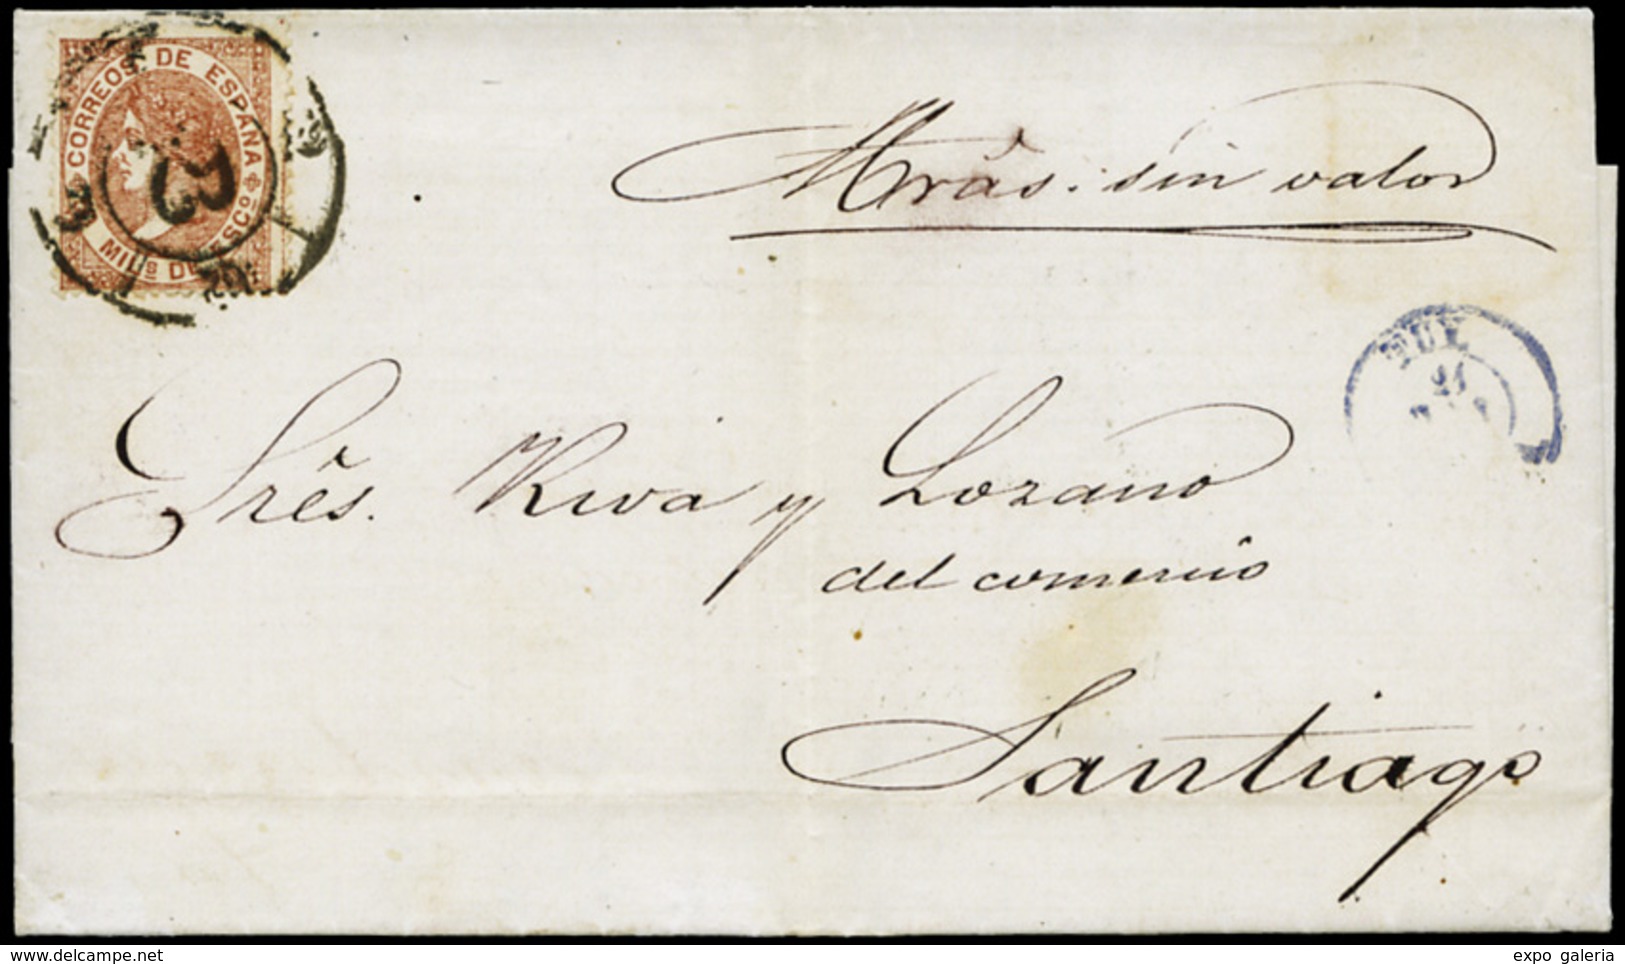 CORREOS DE ESPAÑA
MILS DE ESCO
Mrás. sin valor
TUY
Srēs. Riva y Lozano
del comercio
Santiago
www.delcampe.net
expo galeria